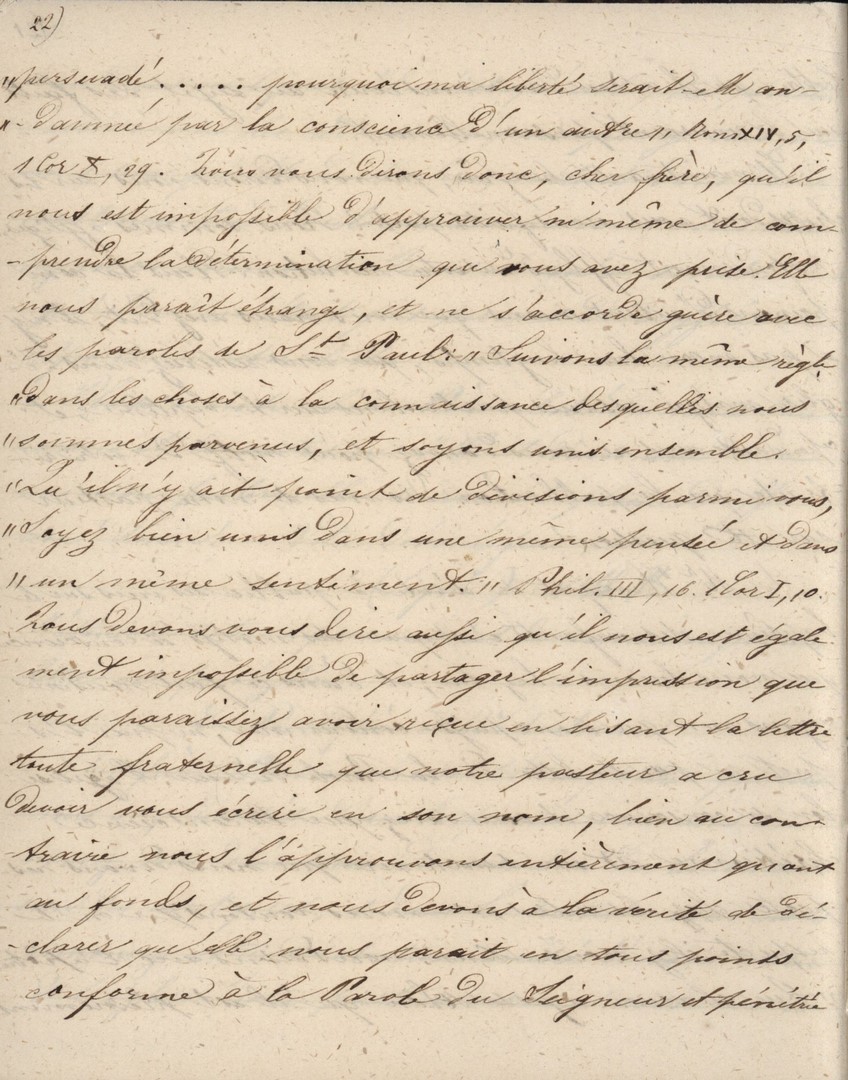 22)
"persuadé..... pourquoi ma liberté serait-elle con-
"-damnée par la conscience d'un autre", Rom XIV, 5,
1 Cor X, 29. Nous vous dirons donc, cher frère, qu'il
nous est impossible d'approuver ni même de com-
-prendre la détermination que vous avez prise. Elle
nous paraît étrange, et ne s'accorde guère avec
les paroles de St Paul: "Suivons la même règle
"dans les choses à la connaissance desquelles nous
"sommes parvenus, et soyons unis ensemble.
"Qu'il n'y ait point de divisions parmi vous,
"Soyez bien unis dans une même pensée et dans
"un même sentiment." Phil. III, 16. 1 Cor I, 10.
Nous devons vous dire aussi qu'il nous est égale-
ment impossible de partager l'impression que
vous paraissez avoir reçue en lisant la lettre
toute fraternelle que notre pasteur a cru
devoir vous écrire en son nom, bien au con-
traire nous l'approuvons entièrement quant
au fonds, et nous devons à la vérité de dé-
-clarer qu'elle nous parait en tous points
conforme à la Parole du Seigneur et pénétrée